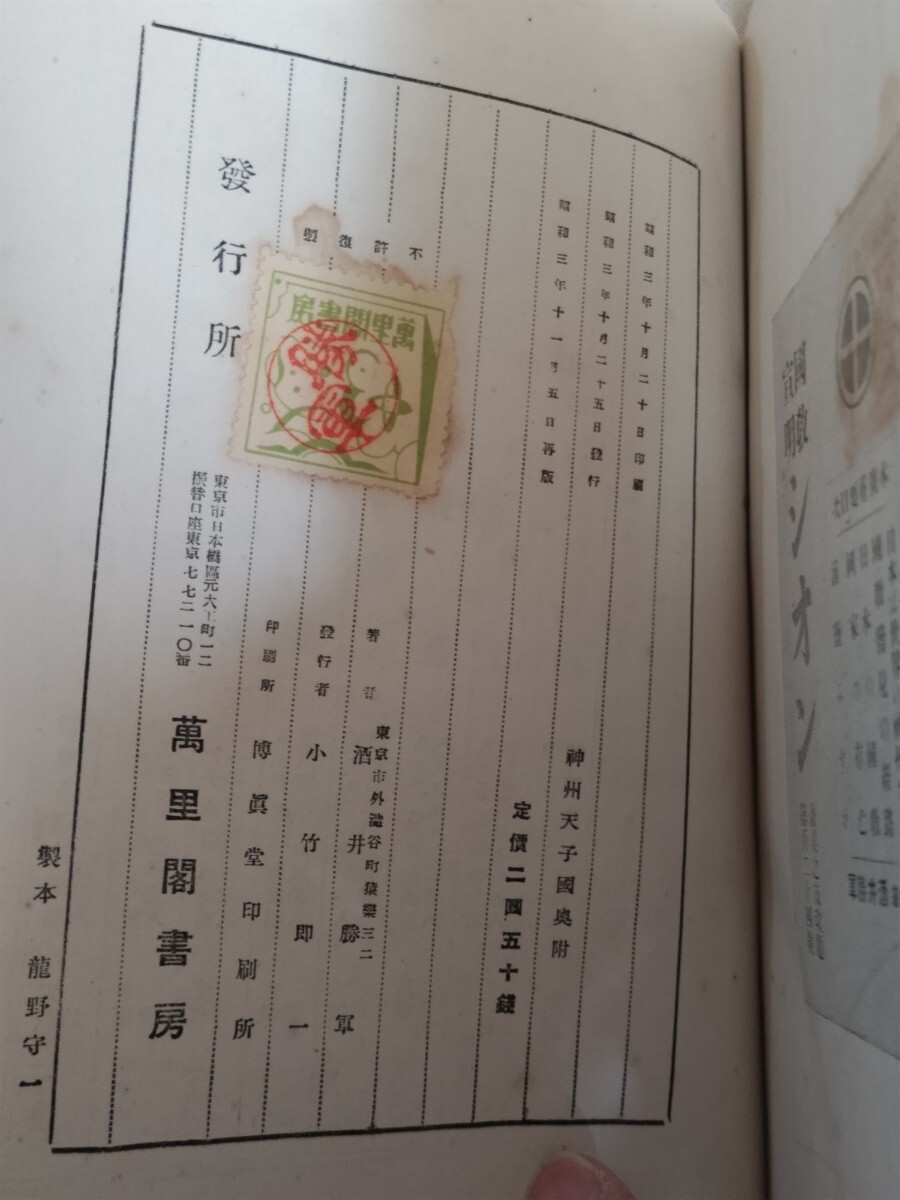 昭和三年十月二十日印刷
昭和三年十月二十五日發行
昭和三年十一月五日再版
神州天子國奧附
定價二圓五十錢
不許復製
萬里閣書房
著者
東京市外澁谷町猿樂三二
酒井勝軍
發行者
小竹即一
印刷所
博眞堂印刷所
發行所
東京市日本橋區元大工町一二
振替口座東京七七二一〇番
萬里閣書房
製本 龍野守一
國教
宣明
シオン